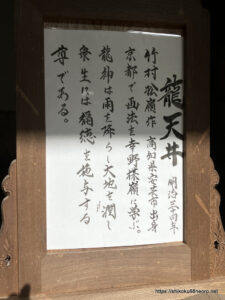 龍天井
明治三四年
竹村松嶺作 高知県安芸市出身
京都で画法を幸野楳嶺に学ぶ。
龍神は雨を降らし大地を潤し
衆生には福徳を施与する
尊である。
https://shikoku88neorp.net